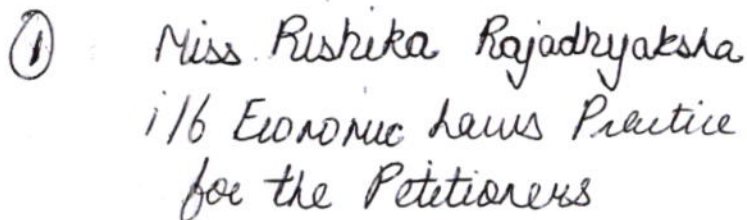 ① Miss. Rishika Rajadhyaksha
i/b Economic Laws Practice
for the Petitioners